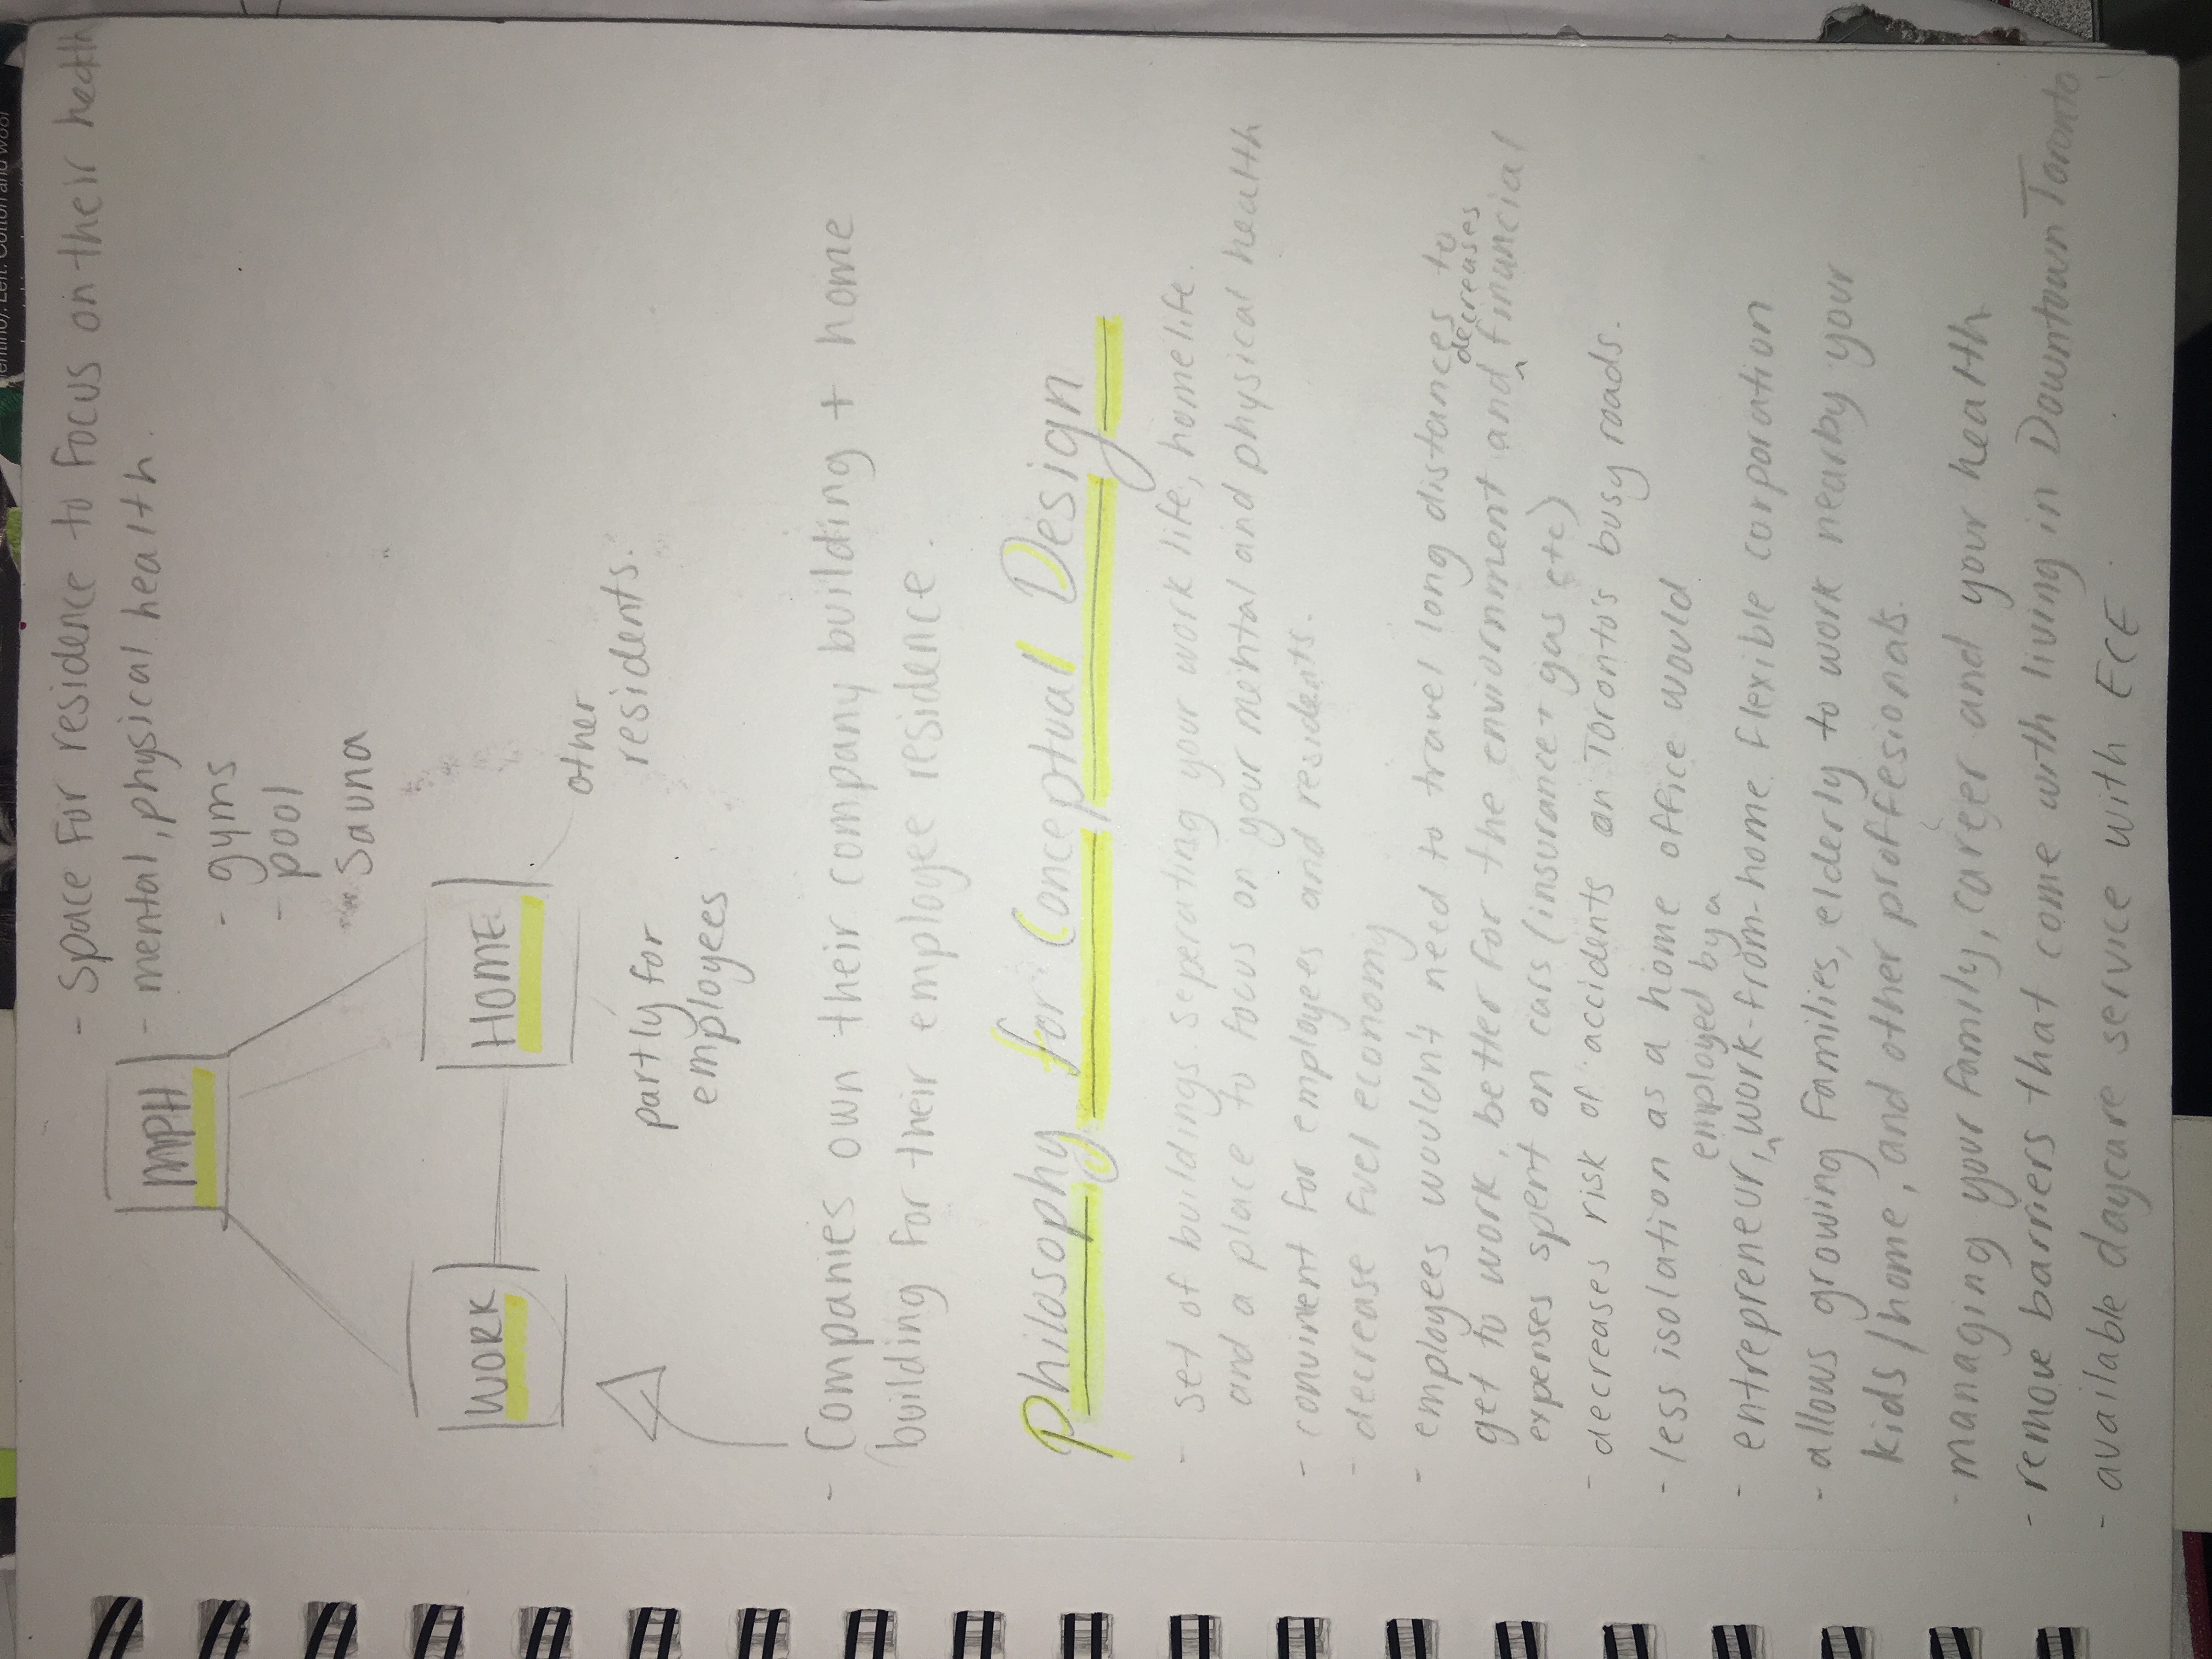 - Space for residence to focus on their health
- mental, physical health.
- gyms
- pool
- Sauna
MPH
WORK
HOME
other
residents.
partly for
employees
- Companies own their company building + home
building for their employee residence.
Philosophy for Conceptual Design
- set of buildings seperating your work life, homelife.
and a place to focus on your mental and physical health
- convinent for employees and residents.
- decrease fuel economy
- employees wouldn't need to travel long distances to
get to work, better for the enviornment and ^ decreases financial
expenses spent on cars (insurance + gas etc)
- decreases risk of accidents on Toronto's busy roads.
- less isolation as a home office would
- entrepreneur, ^ employed by a work-from-home flexible corporation
- allows growing families, elderly to work nearby your
kids/home, and other proffesionals.
- managing your family, career and your health
- remove barriers that come with living in Downtown Toronto
- available daycare service with ECE.